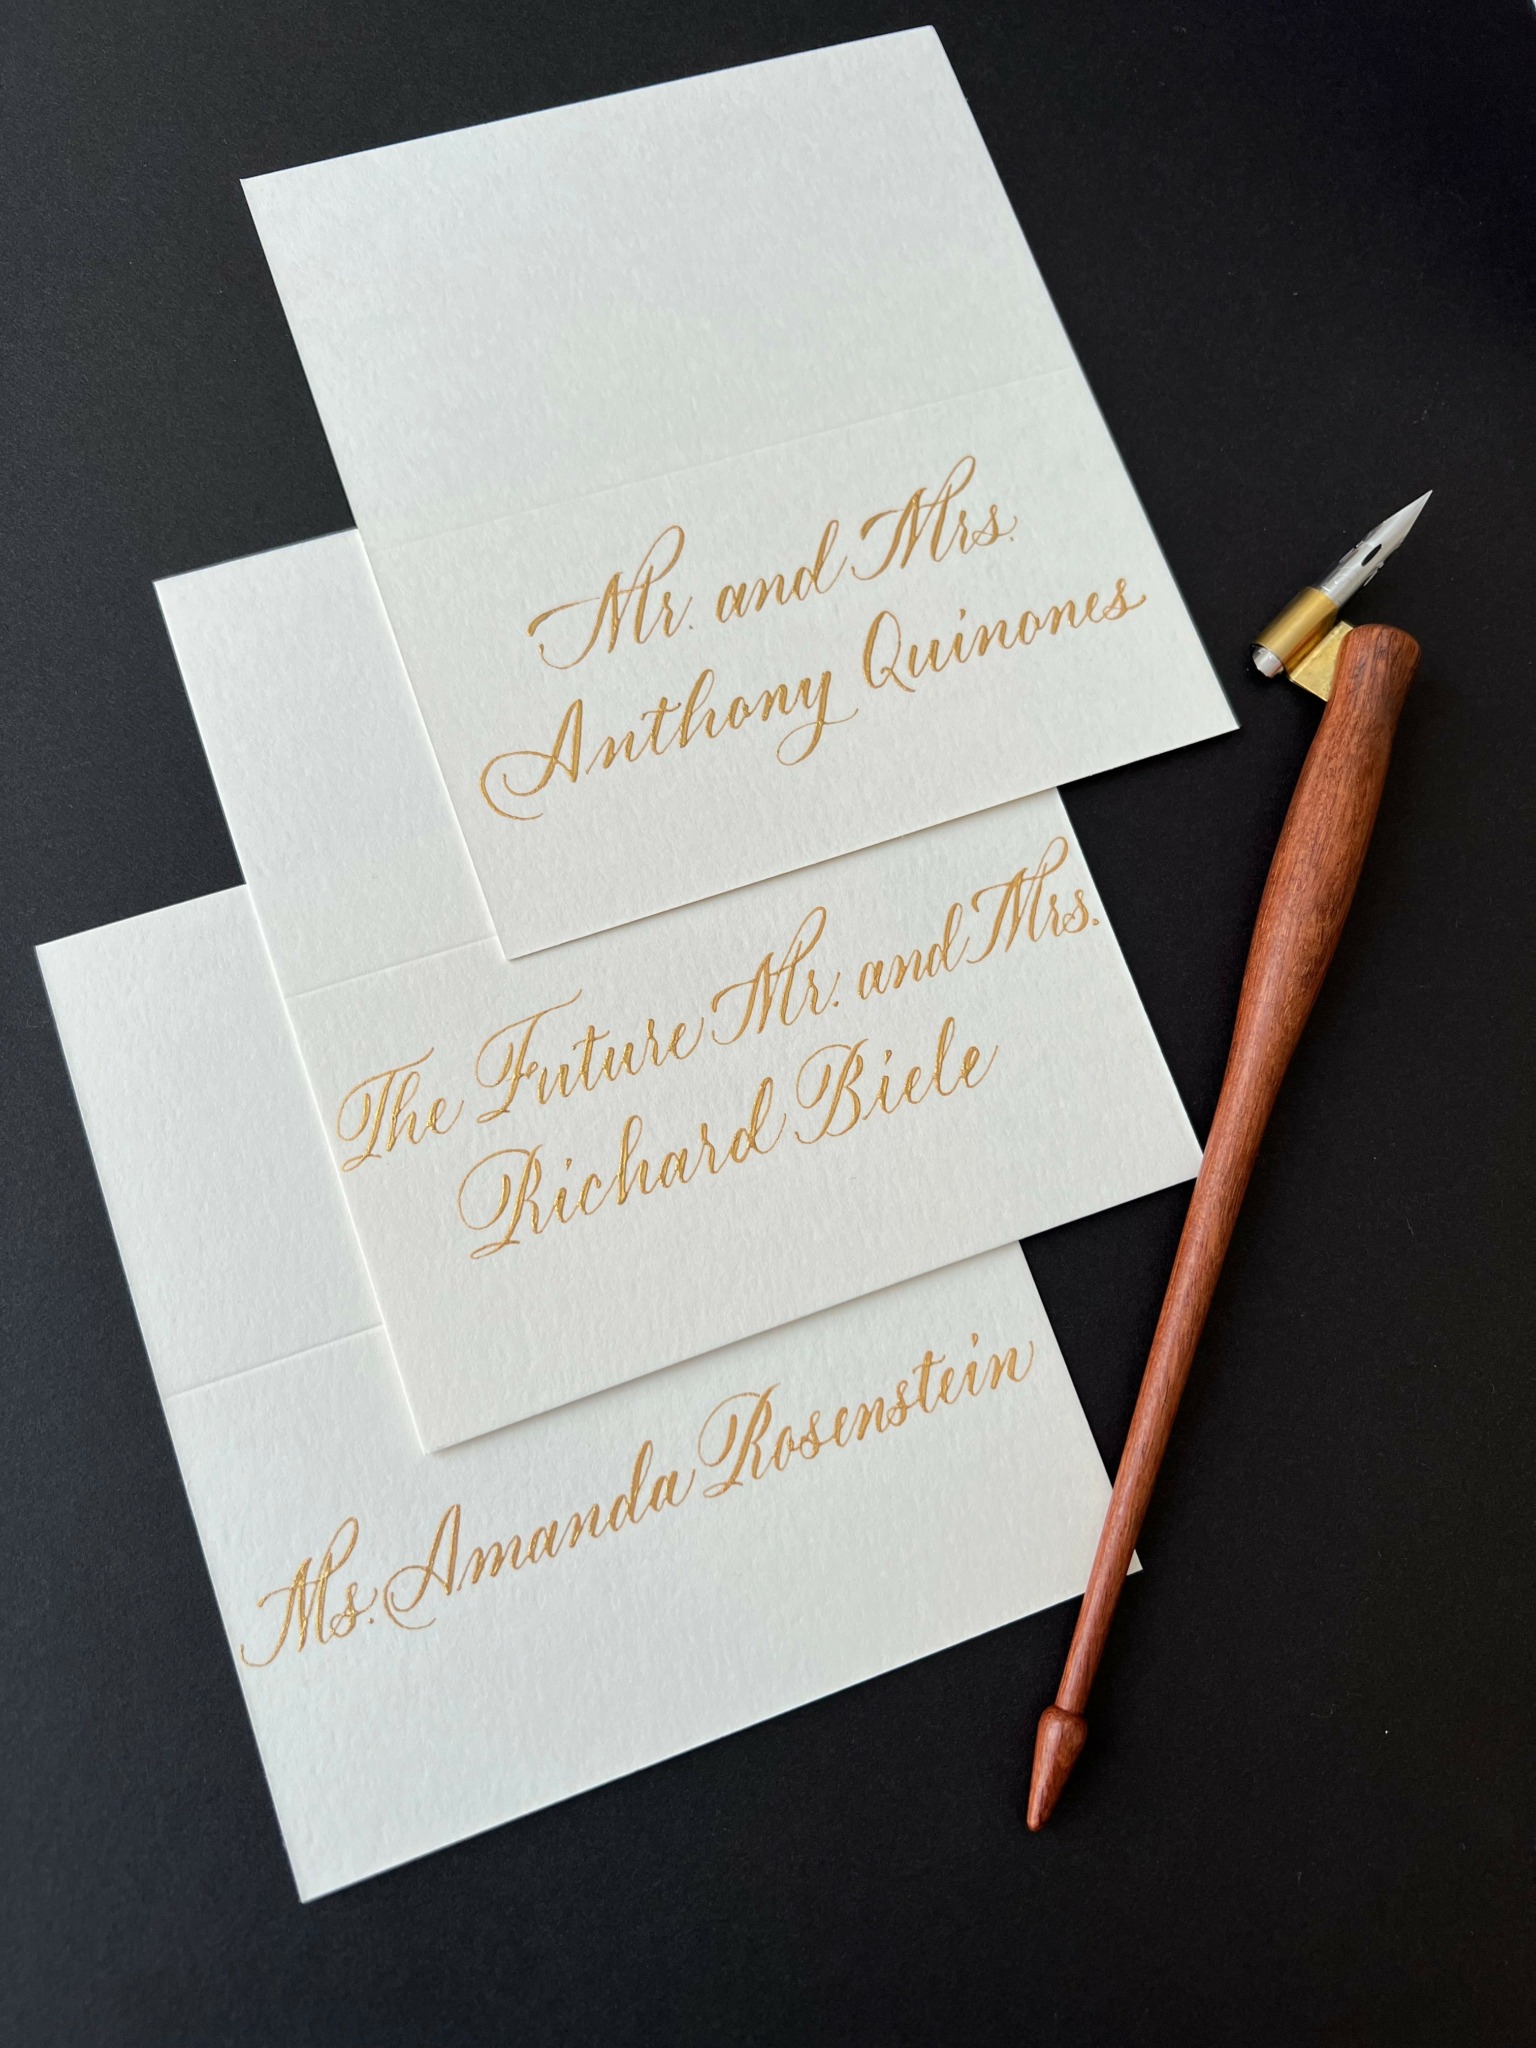 Mr. and Mrs.
Anthony Quinones
The Future Mr. and Mrs.
Richard Biele
Ms. Amanda Rosenstein